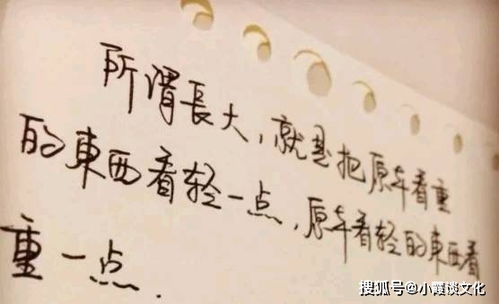 所谓長大,就是把原本看重
的東西看轻一点,原本看轻的東西看
重一点.
搜狐号@小霞谈文化